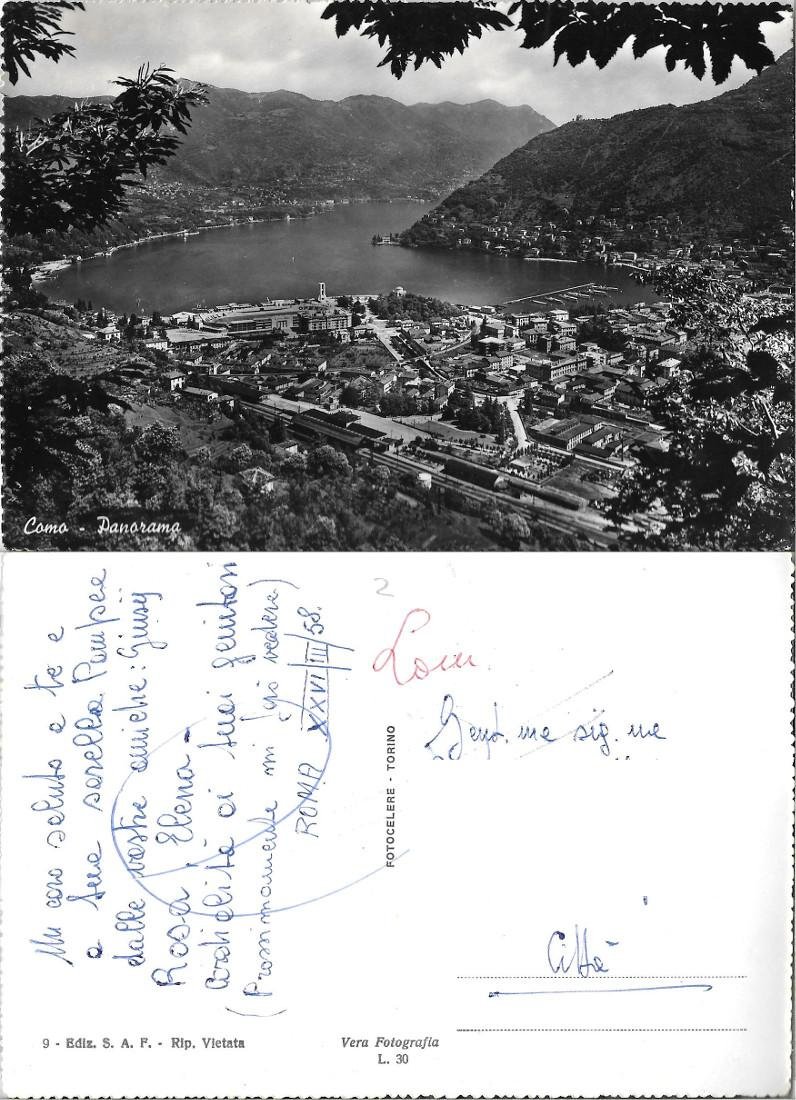 Como - Panorama
Un caro saluto a te e
a tua sorella Pompea
dalle vostre amiche: Giusy
Rosa Elena -
Cordialità ai tuoi genitori
(Prossimamente mi farò vedere)
ROMA XXVI/III/58.
2
FOTOCELERE - TORINO
Gent. me sig. ne
Città
9 - Ediz. S. A. F. - Rip. Vietata
Vera Fotografia
L. 30